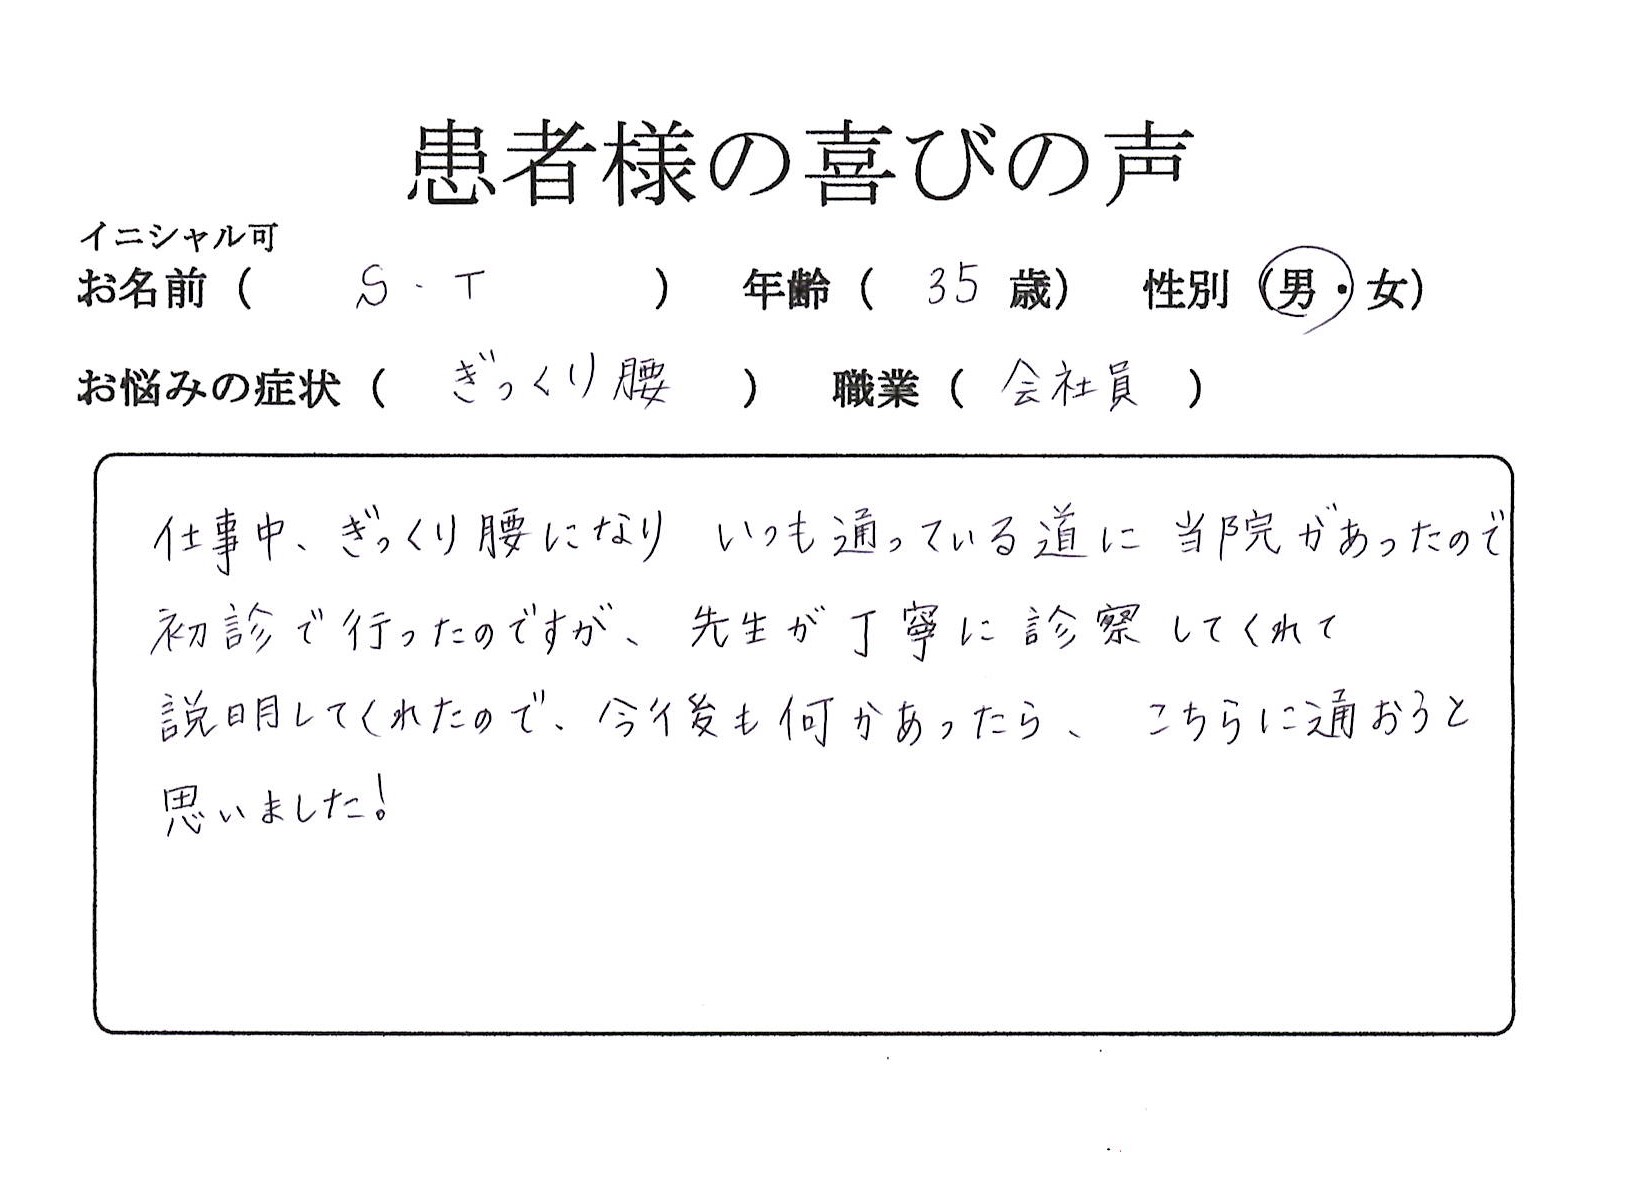 患者様の喜びの声
イニシャル可
お名前（ S・T ） 年齢（ 35 歳） 性別（男・女）
お悩みの症状（ ぎっくり腰 ） 職業（ 会社員 ）
仕事中、ぎっくり腰になり いつも通っている道に 当院があったので
初診で行ったのですが、 先生が丁寧に診察してくれて
説明してくれたので、今後も何かあったら、 こちらに通おうと
思いました!